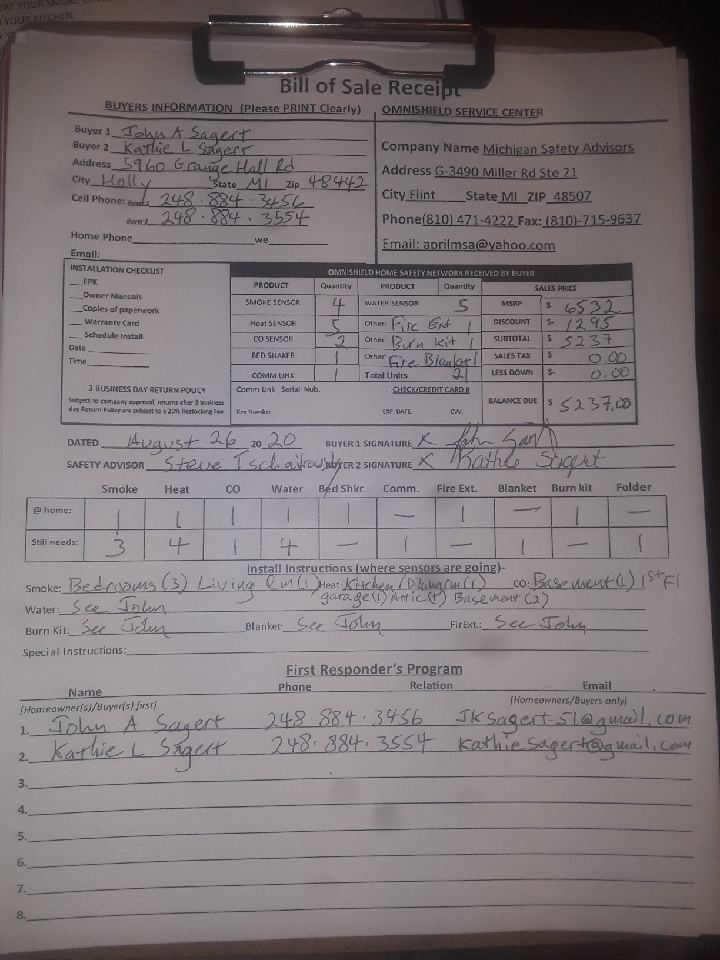 YOUR KITCHEN
Bill of Sale Receipt
BUYERS INFORMATION (Please PRINT Clearly) OMNISHIELD SERVICE CENTER
Buyer 1 John A Sagert
Buyer 2 Kathie L Sagert
Address 5960 Grange Hall Rd
City Holly State MI Zip 48442
Cell Phone: 248.884.3456
248.884.3554
Home Phone we
Email:
Company Name Michigan Safety Advisors
Address G-3490 Miller Rd Ste 21
City Flint State MI ZIP 48507
Phone (810) 471-4222 Fax: (810)-715-9637
Email: aprilmsa@yahoo.com
INSTALLATION CHECKLIST
EPK
Owner Manuals
Copies of paperwork
Warranty Card
Schedule Install
Date
Time
3 BUSINESS DAY RETURN POLICY
Subject to company approval, returns after 3 business
day Return Policy are subject to a 20% Restocking Fee
OMNISHIELD HOME SAFETY NETWORK RECEIVED BY BUYER
PRODUCT Quantity PRODUCT Quantity SALES PRICE
SMOKE SENSOR 4 WATER SENSOR 5 MSRP $ 6532
Heat SENSOR 5 Other: Fire Ext 1 DISCOUNT $- 1295
CO SENSOR 2 Other: Burn Kit 1 SUBTOTAL $ 5237
BED SHAKER 1 Other: Fire Blanket 1 SALES TAX $ 0.00
COMM LINK 1 Total Units 21 LESS DOWN $- 0.00
Comm Link Serial Nub. CHECK/CREDIT CARD # BALANCE DUE $ 5237.00
Key Number EXP. DATE CVV.
DATED August 26 2020 BUYER 1 SIGNATURE X
SAFETY ADVISOR Steve BUYER 2 SIGNATURE X Kathie Sagert
Smoke Heat CO Water Bed Shkr. Comm. Fire Ext. Blanket Burn kit Folder
@ home: 1 1 1 1 1 — 1 — 1 —
Still needs: 3 4 1 4 — 1 — 1 — 1
Install Instructions (where sensors are going)-
Smoke: Bedrooms (3) Living Rm (1) Heat: Kitchen (1) Dining rm (1) CO: Basement (1) 1st Fl
garage (1) Attic (1) Basement (2)
Water: See John
Burn Kit: See John Blanket: See John FirExt.: See John
Special Instructions:
First Responder's Program
Name Phone Relation Email
(Homeowner(s)/Buyer(s) first) (Homeowners/Buyers only)
1. John A Sagert 248.884.3456 JKSagert51@gmail.com
2. Kathie L Sagert 248.884.3554 Kathiesagert@gmail.com
3.
4.
5.
6.
7.
8.